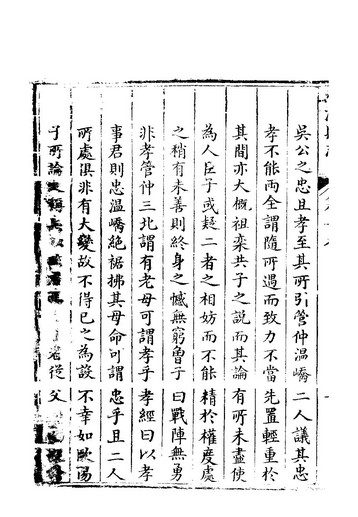 吳公之忠且孝至其所引管仲温嶠二人議其忠
孝不能两全謂隨所遇而致力不當先置輕重於
其間亦大概祖欒共子之說而其論有所未盡使
為人臣子或疑二者之相妨而不能精於權度處
之稍有未善則終身之憾無窮魯子曰戰陣無勇
非孝管仲三北謂有老母可謂孝乎孝經曰以孝
事君則忠温嶠絕裾拂其母命可謂忠乎且二人
所處俱非有大變故不得已之為設不幸如歐陽
子所論 從父